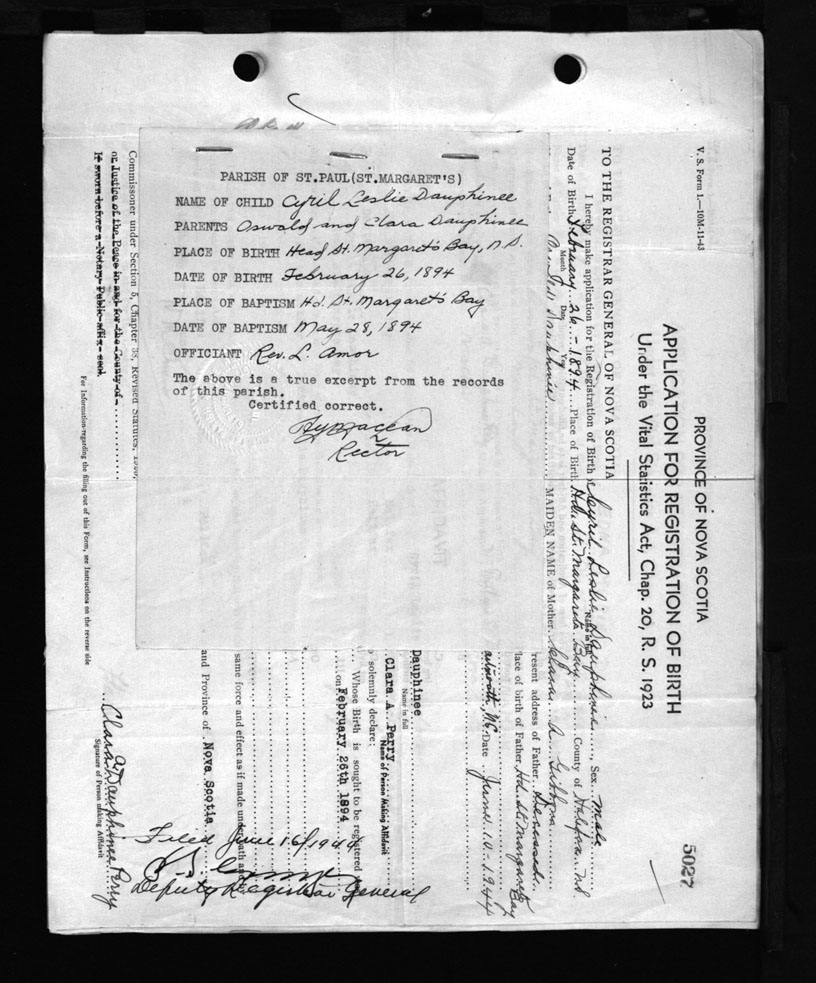 PARISH OF ST.PAUL(ST.MARGARET'S)
NAME OF CHILD Cyril Leslie Dauphinee
PARENTS Oswald and Clara Dauphinee
PLACE OF BIRTH Head St. Margaret's Bay, N.S.
DATE OF BIRTH February 26, 1894
PLACE OF BAPTISM Hd. St. Margaret's Bay
DATE OF BAPTISM May 28, 1894
OFFICIANT Rev. L. Amor
The above is a true excerpt from the records
of this parish.
Certified correct.
Rector
V. S. Form 1.—10M-11-43
PROVINCE OF NOVA SCOTIA
5027
APPLICATION FOR REGISTRATION OF BIRTH
Under the Vital Staistics Act, Chap. 20, R. S. 1923
TO THE REGISTRAR GENERAL OF NOVA SCOTIA
I hereby make application for the Registration of Birth of Cyril Leslie Dauphinee, Sex Male
Name in full
Date of Birth February 26 - 1894 Place of Birth Hd. St. Margarets Bay County of Halifax N.S.
Month Day Year
Dauphinee MAIDEN NAME of Mother Clara A
resent address of Father Deceased
lace of birth of Father Hd. St. Margarets Bay
Date June 10 - 1944
Dauphinee
Name in full
Clara A. Perry
Name of Person Making Affidavit
o solemnly declare:
Whose Birth is sought to be registered
on February 26th 1894
same force and effect as if made under oath and
and Province of Nova Scotia
Filed June 16/1944
Deputy Registrar General
Clara A Dauphinee Perry
Signature of Person making Affidavit
Commissioner under Section 5, Chapter 38, Revised Statutes, 1900,
or Justice of the Peace in and for the County of
If sworn before a Notary Public affix seal.
For Information regarding the filling out of this Form, see Instructions on the reverse side